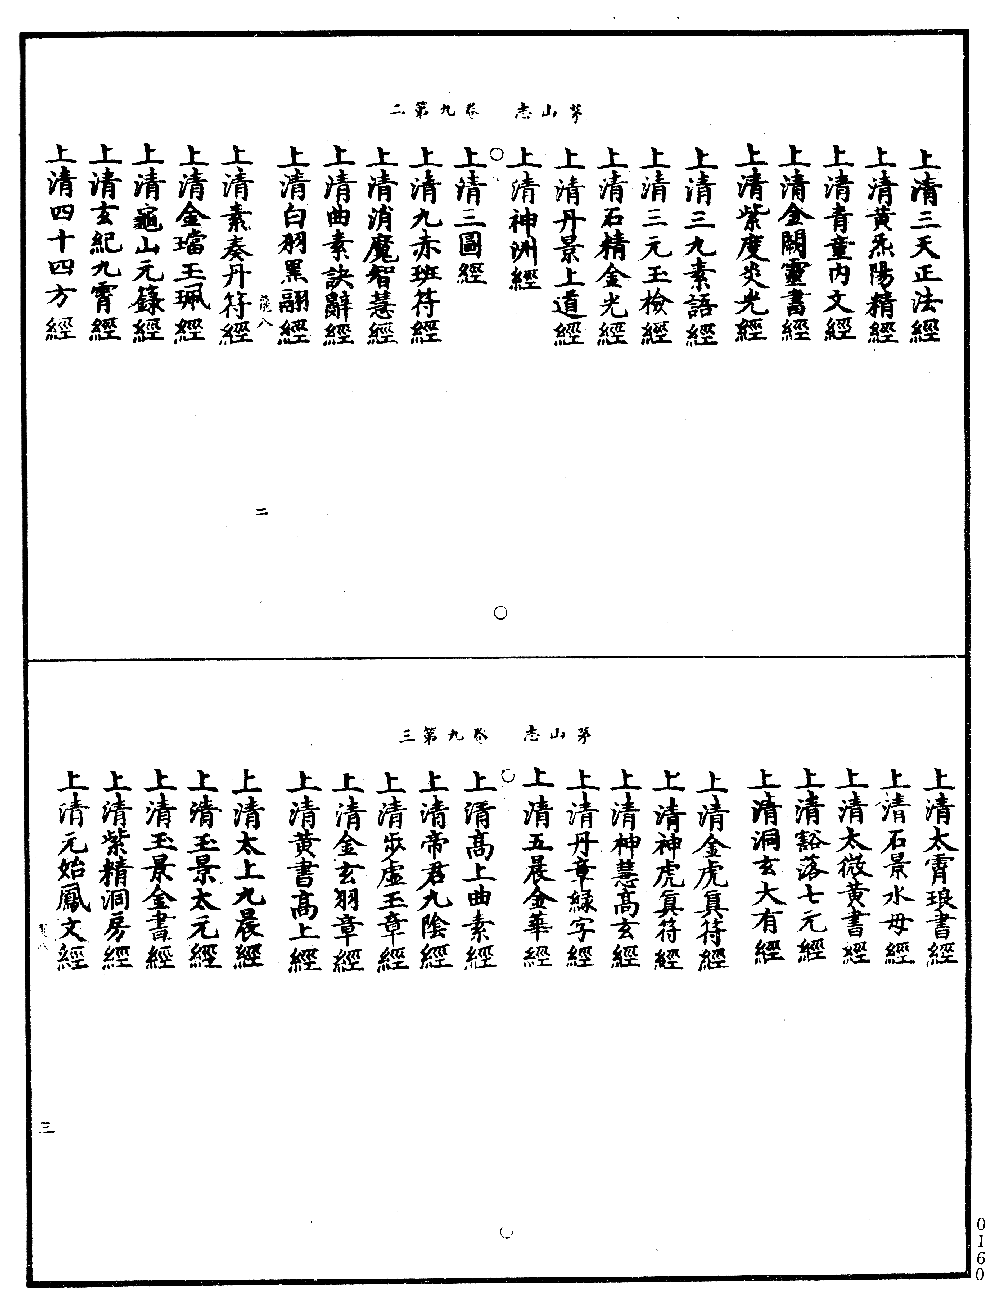 茅山志　卷九第二
上清三天正法經
上清黃炁陽精經
上清青童內文經
上清金闕靈書經
上清紫度炎光經
上清三九素語經
上清三元玉檢經
上清石精金光經
上清丹景上道經
上清神洲經
上清三圖經
上清九赤班符經
上清消魔智慧經
上清曲素訣辭經
上清白羽黑翮經
二
上清素奏丹符經
上清金璫玉珮經
上清龜山元籙經
上清玄紀九霄經
上清四十四方經
茅山志　卷九第三
上清太霄琅書經
上清石景水母經
上清太微黃書經
上清豁落七元經
上清洞玄大有經
上清金虎真符經
上清神虎真符經
上清神慧高玄經
上清丹章綠字經
上清五晨金華經
上清高上曲素經
上清帝君九陰經
上清步虛玉章經
上清金玄羽章經
上清黃書高上經
上清太上九晨經
上清玉景太元經
上清玉景金書經
上清紫精洞房經
上清元始鳳文經
三
0160